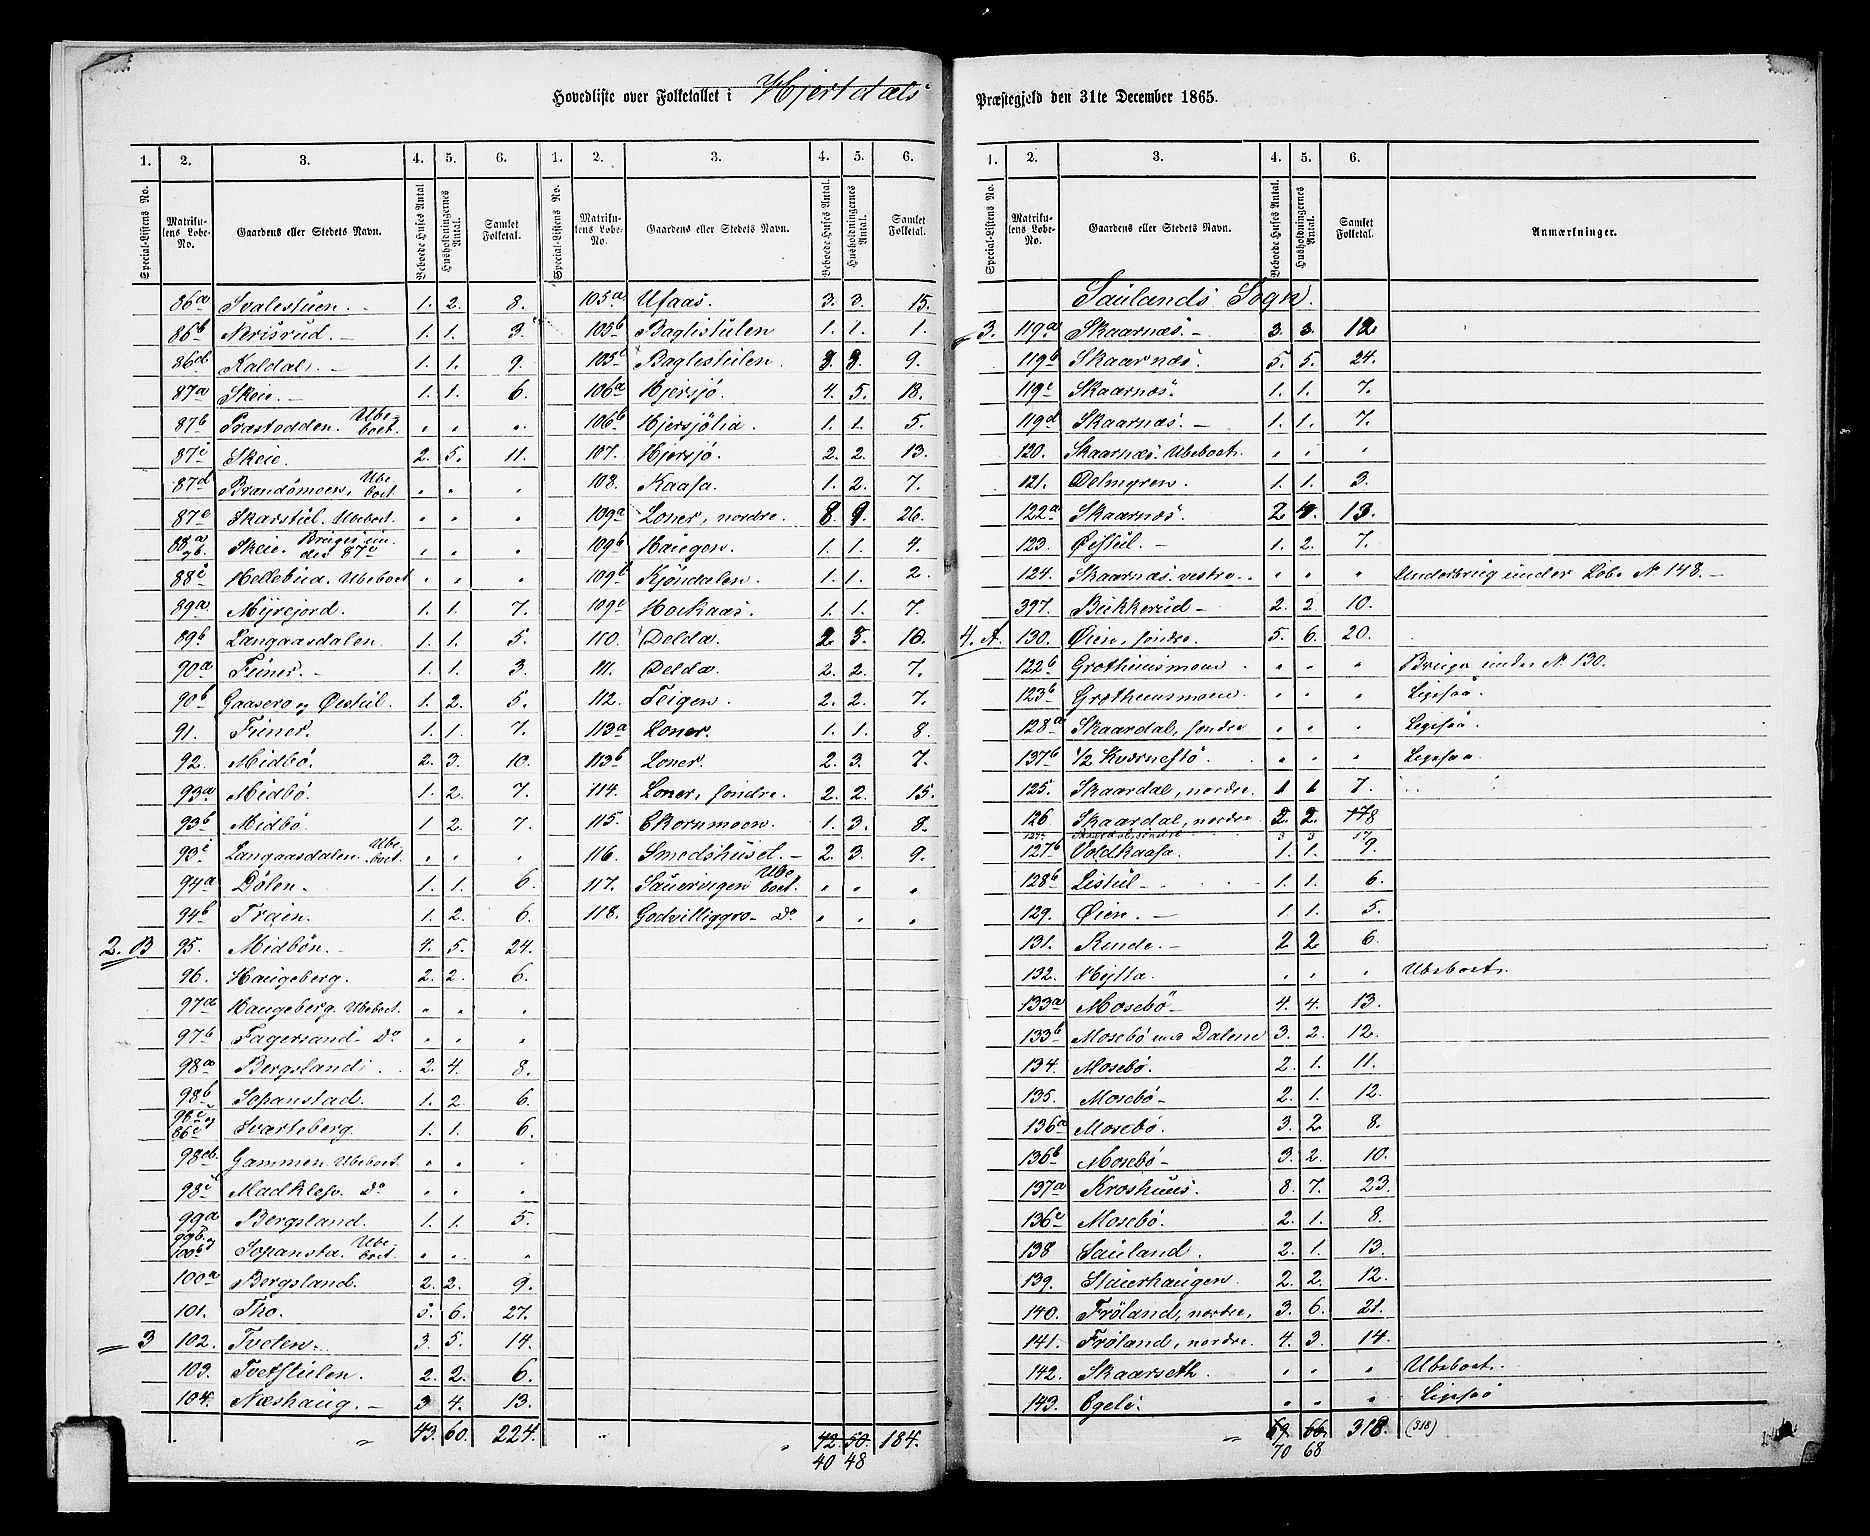 Hovedliste over Folketallet i Hjertdals
Præstegjeld den 31te December 1865.
1. 2. 3. 4. 5. 6. 1. 2. 3. 4. 5. 6.
Special-Listens No. Matrikulens Løbe-No. Gaardens eller Stedets Navn. Beboede Huses Antal. Husholdningernes Antal. Samlet Folketal. Special-Listens No. Matrikulens Løbe-No. Gaardens eller Stedets Navn. Beboede Huses Antal. Husholdningernes Antal. Samlet Folketal.
86a Svalestuen. 1. 2. 8.
86b Nerisrud. 1. 1. 3.
86d Kaldal. 1. 1. 9.
87a Skeie. 1. 1. 6.
87b Præstodden. Ubeboet. " " "
87c Skeie. 2. 5. 11.
87d Brandsmoen, Ubeboet " " "
87e Skarstul. Ubeboet. " " "
88a og b. Skeie. Bruges under 87c " " "
88c Hellebua. Ubeboet " " "
89a Myrejord. 1. 1. 7.
89b Langaasdalen. 1. 1. 5.
90a Tuner. 1. 1. 3.
90b Gaasero og Østul. 1. 2. 5.
91. Tuner. 1. 1. 7.
92. Midbø. 2. 3. 10.
93a Midbø. 1. 2. 7.
93b Midbø 1. 2. 7.
93c Langaasdalen. Ubeboet. " " "
94a Dølen. 1. 1. 6.
94b Traen. 1. 2. 6.
2. B 95. Midbøn. 4. 5. 24.
96. Haugeberg. 2. 2. 6.
97a Haugeberg. Ubeboet. " " "
97b Fagersand. Do " " "
98a Bergsland. 2. 4. 8.
98b Sopanstad. 1. 2. 6.
98c og 86c Svarteberg. 1. 1. 6.
98d. Gammen. Ubeboet. " " "
98e Madklev. Do " " "
99a Bergsland. 1. 1. 5.
99b. og 100b Sopansta. Ubeboet. " " "
100a Bergsland. 2. 2. 9.
101. Tho. 5. 6. 27.
3 102. Tveten. 3. 5. 14.
103. Tvetstulen. 2. 2. 6.
104. Næshaug. 3 4. 13.
" " 43. 60. 224.
105a Ufaas. 3. 3. 15.
105b Baglistulen 1. 1. 1.
105c Baglistulen. 3. 3. 9.
106a Hjersjø. 4. 5. 18.
106b Hjersjølia. 1. 1. 5.
107. Hjersjø. 2. 2. 13.
108. Kaasa. 1. 2. 7.
109a Loner, nordre. 8 9. 26.
109b Haugen. 1. 1. 4.
109b Kjøndalen. 1. 1. 2.
109c Hovkaas. 1. 1. 7.
110. Deldæ. 2 3. 10.
111. Deldæ 2. 2. 7.
112. Teigen. 2. 2. 7
113a Loner. 1. 1. 8.
113b Loner. 2. 3. 7.
114. Loner, søndre. 2. 2. 15.
115. Ekornmoen. 1. 3. 8.
116. Smedshuset. 2. 3. 9.
117. Sauervigen Ubeboet. " " "
118. Godvilliggro Do " " "
" " 42. 50. 184.
40 48
1. 2. 3. 4. 5. 6.
Special-Listens No. Matrikulens Løbe-No. Gaardens eller Stedets Navn. Beboede Huses Antal. Husholdningernes Antal. Samlet Folketal. Anmærkninger.
Saulands Sogn.
3. 119a Skaarnæs. 3 3. 12
119b Skaarnæs. 5. 5. 24.
119c Skaarnæs. 1. 1. 7.
119d Skaarnæs. 1. 1. 7.
120. Skaarnæs. Ubeboet. " " "
121. Delmyren. 1. 1. 3.
122a Skaarnæs. 2 4. 13.
123. Østul. 1. 2. 7.
124. Skaarnæs, vestre. " " " Underbrug under Løb. No 148.
397. Bukkerud 2. 2. 10.
4. A. 130. Øien, søndre. 5. 6. 20.
122b Grothuusmoen " " " Bruges under No. 130.
123b Grothuusmoen. " " " Ligesaa.
128a Skaardal, søndre " " " Ligesaa.
137b 1/2 Kværnestø. " " " Ligesaa.
125. Skaardal, nordre. 1 1 7.
126. Skaardal, nordre. 2. 2. 8
127a Skaardal, søndre 3 3 17
127b Voldkaasa. 1. 1. 9.
128b Listul. 1. 1. 6.
129. Øien. 1. 1. 5.
131. Rinde. 2 2 6.
132. Hylta. " " " Ubeboet.
133a Mosebø 4. 4. 13.
133b Mosebø med Dalene 3. 2. 12.
134. Mosebø. 2. 1. 11.
135. Mosebø 2. 1. 12.
136a Mosebø. 3. 2 8.
136b Mosebø 3. 2. 10.
137a Kroshuus. 8. 7. 23.
136c Mosebø. 2. 1. 8.
138 Sauland. 2. 1. 13.
139. Stuerhaugen. 2. 2. 12.
140. Frøland, nordre. 3. 6. 21.
141. Frøland, nordre. 4. 3. 14.
142. Skaarseth. " " " Ubeboet.
143. Øgele. " " " Ligesaa
" 69. 66. 318. (318)
70 68